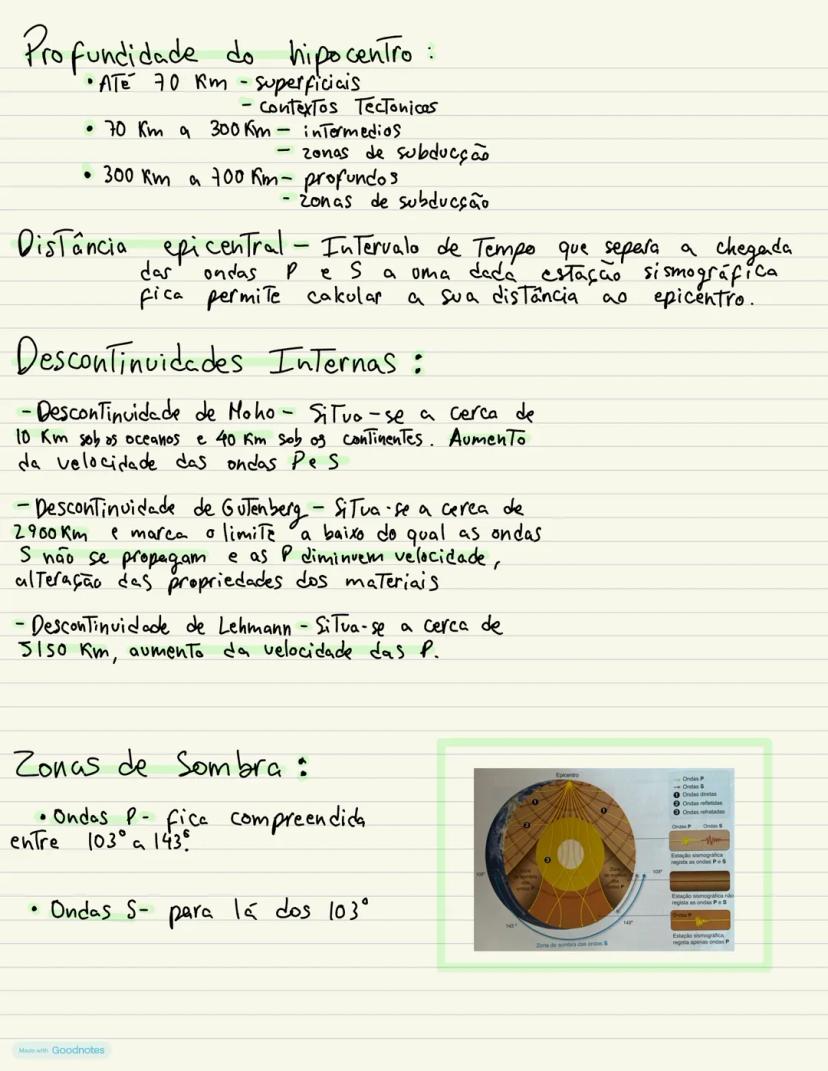 Profundidade do hipocentro :
• ATÉ 70 Km - superficiais
- contextos Tectonicos
• 70 Km a 300 Km - intermedios
- zonas de subducção
• 300 Km a 700 Km - profundos
- zonas de subducção
Distância epicentral - Intervalo de Tempo que separa a chegada
das ondas P e S a uma dada estação sismográfica
fica permite calcular a sua distância ao epicentro.
Descontinuidades Internas :
- Descontinuidade de Moho - Situa-se a cerca de
10 Km sob os oceanos e 40 Km sob os continentes. Aumento
da velocidade das ondas P e S
- Descontinuidade de Gutenberg - Situa-se a cerca de
2900 Km e marca o limite a baixo do qual as ondas
S não se propagam e as P diminuem velocidade,
alteração das propriedades dos materiais
- Descontinuidade de Lehmann - Situa-se a cerca de
5150 Km, aumento da velocidade das P.
Zonas de Sombra :
• Ondas P - fica compreendida
entre 103° a 143°.
• Ondas S - para lá dos 103°
Epicentro
Ondas P
Ondas S
1 Ondas diretas
2 Ondas refletidas
3 Ondas refratadas
Ondas P Ondas S
Estação sismográfica
regista as ondas P e S
Estação sismográfica não
regista as ondas P e S
Ondas P
Estação sismográfica,
regista apenas ondas P
1
1
2
3
103°
103°
143°
143°
Zona de sombra das ondas S
Made with Goodnotes